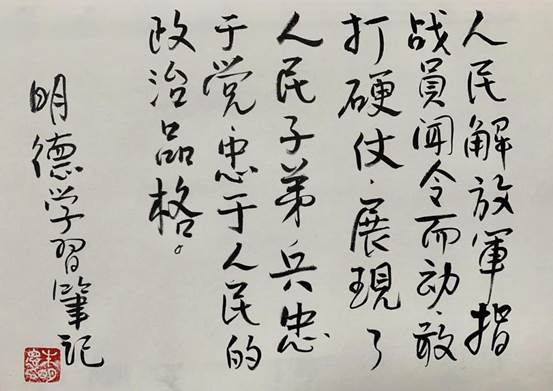 人民解放軍指
战員闻令而动、敢
打硬仗、展現了
人民子弟兵忠
于党忠于人民的
政治品格。
明德学習筆記